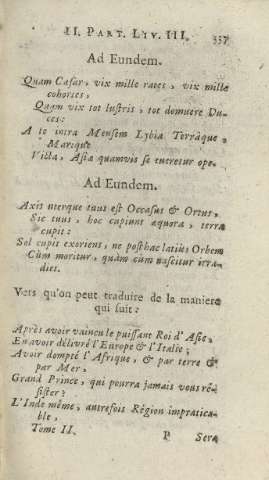 II. Part. Liv. III. 337
Ad Eundem.
Quam Cæsar, vix mille rates, vix mille
cohortes,
Quam vix tot lustris, tot domuere Du-
ces:
A te intra Mensem Lybia Terrâque,
Marique
Victa, Asiæ quamvis se tueretur ope.
Ad Eundem.
Axis uterque tuus est Occasus & Ortus,
Sic tuus, hoc cupiunt æquora, terra
cupit:
Sol cupit exoriens, ne posthac latiùs Orbem
Cùm moritur, quàm cùm nascitur irra-
diet.
Vers qu'on peut traduire de la maniere
qui suit:
Après avoir vaincu le puissant Roi d'Asie,
En avoir délivré l'Europe & l'Italie;
Avoir dompté l'Afrique, & par terre &
par Mer,
Grand Prince, qui pourra jamais vous ré-
sister?
L'Inde même, autrefois Région impratica-
ble,
Tome II. P Sera